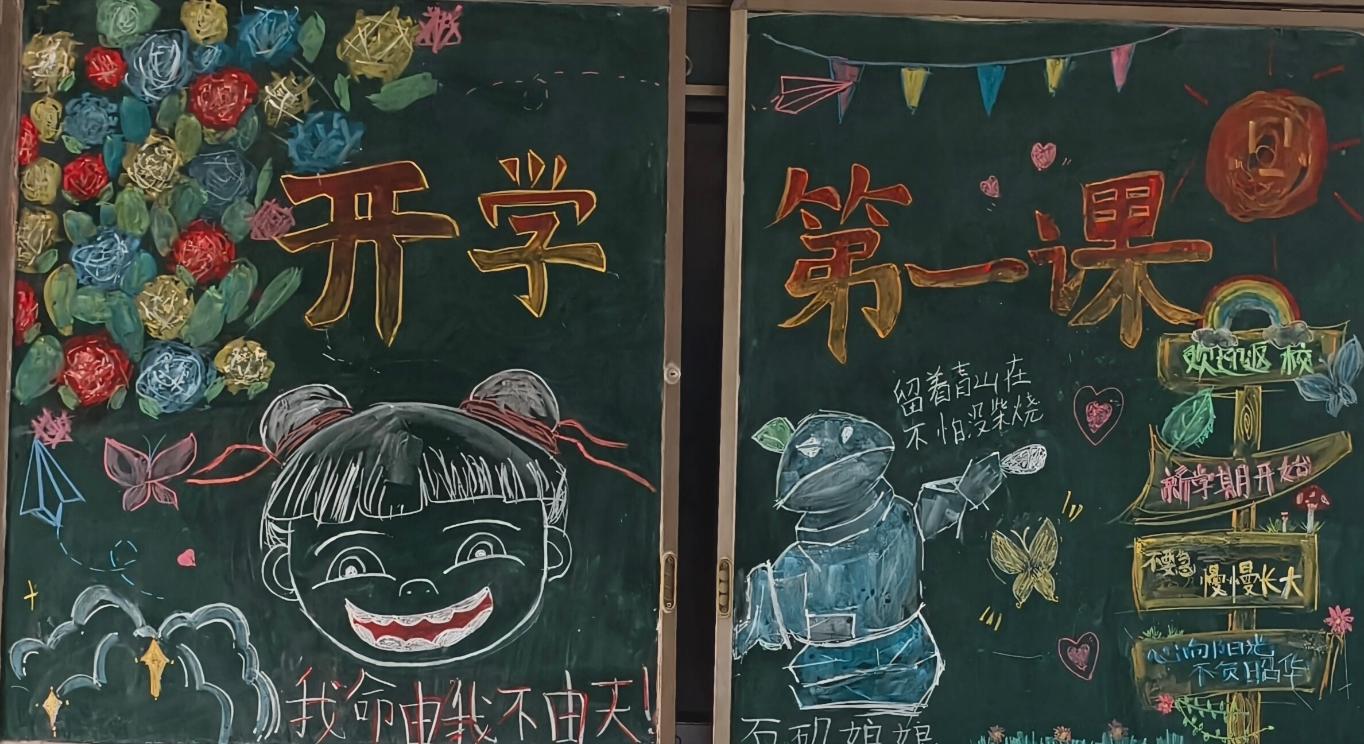 开学
第一课
留着青山在
不怕没柴烧
欢迎返校
新学期开始
不要急
慢慢长大
心向阳光
不负韶华
我命由我不由天!
石矶娘娘